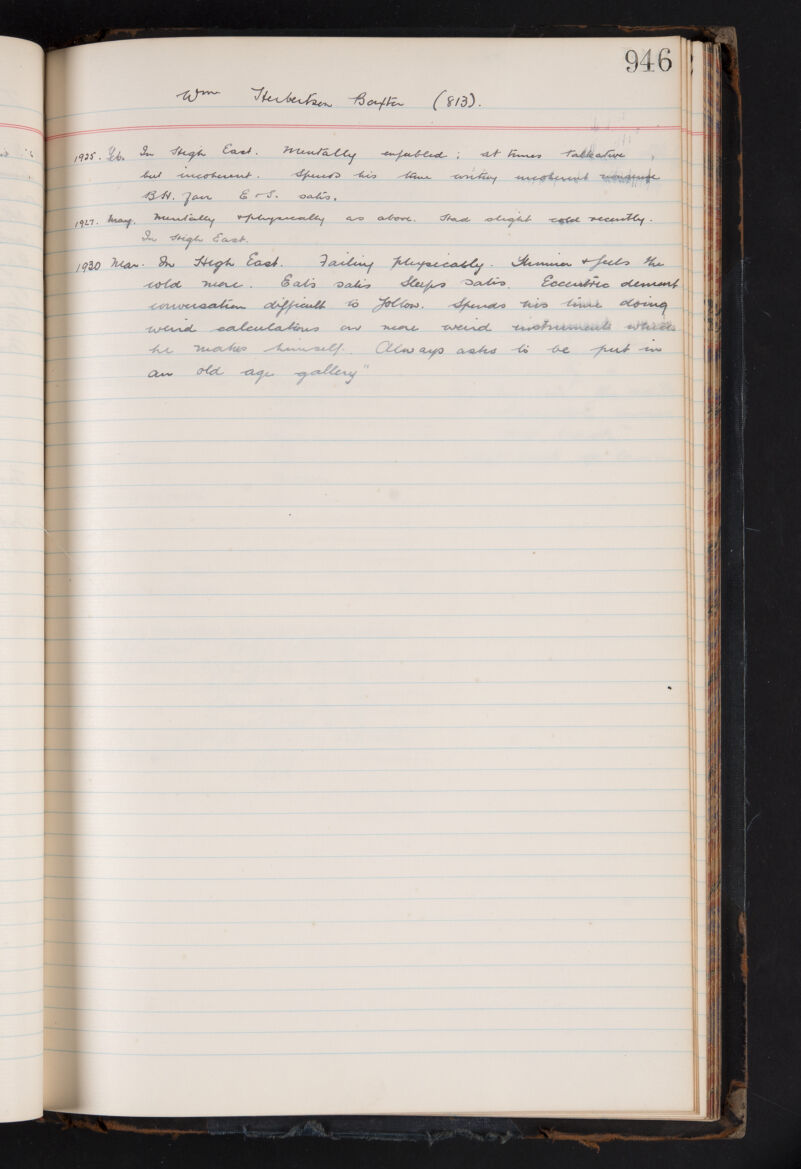 946
Wm Herbertson Baxter (813).
1925. Feb. In High East. Mentally enfeebled; at times talkative,
but incoherent. Spends his time writing incoherent nonsense
B.H. fair E & S. satis.
1927. May. Mentally & physically as above. Had slight cold recently.
In High East.
1930 Mar. In High East. Failing physically. Thinner & feels the
cold more. Eats satis Sleeps satis. Eccentric dement
conversation difficult to follow. Spends his time doing
weird calculations on more weird instruments which
he makes himself. Always asks to be put in
an old age gallery"